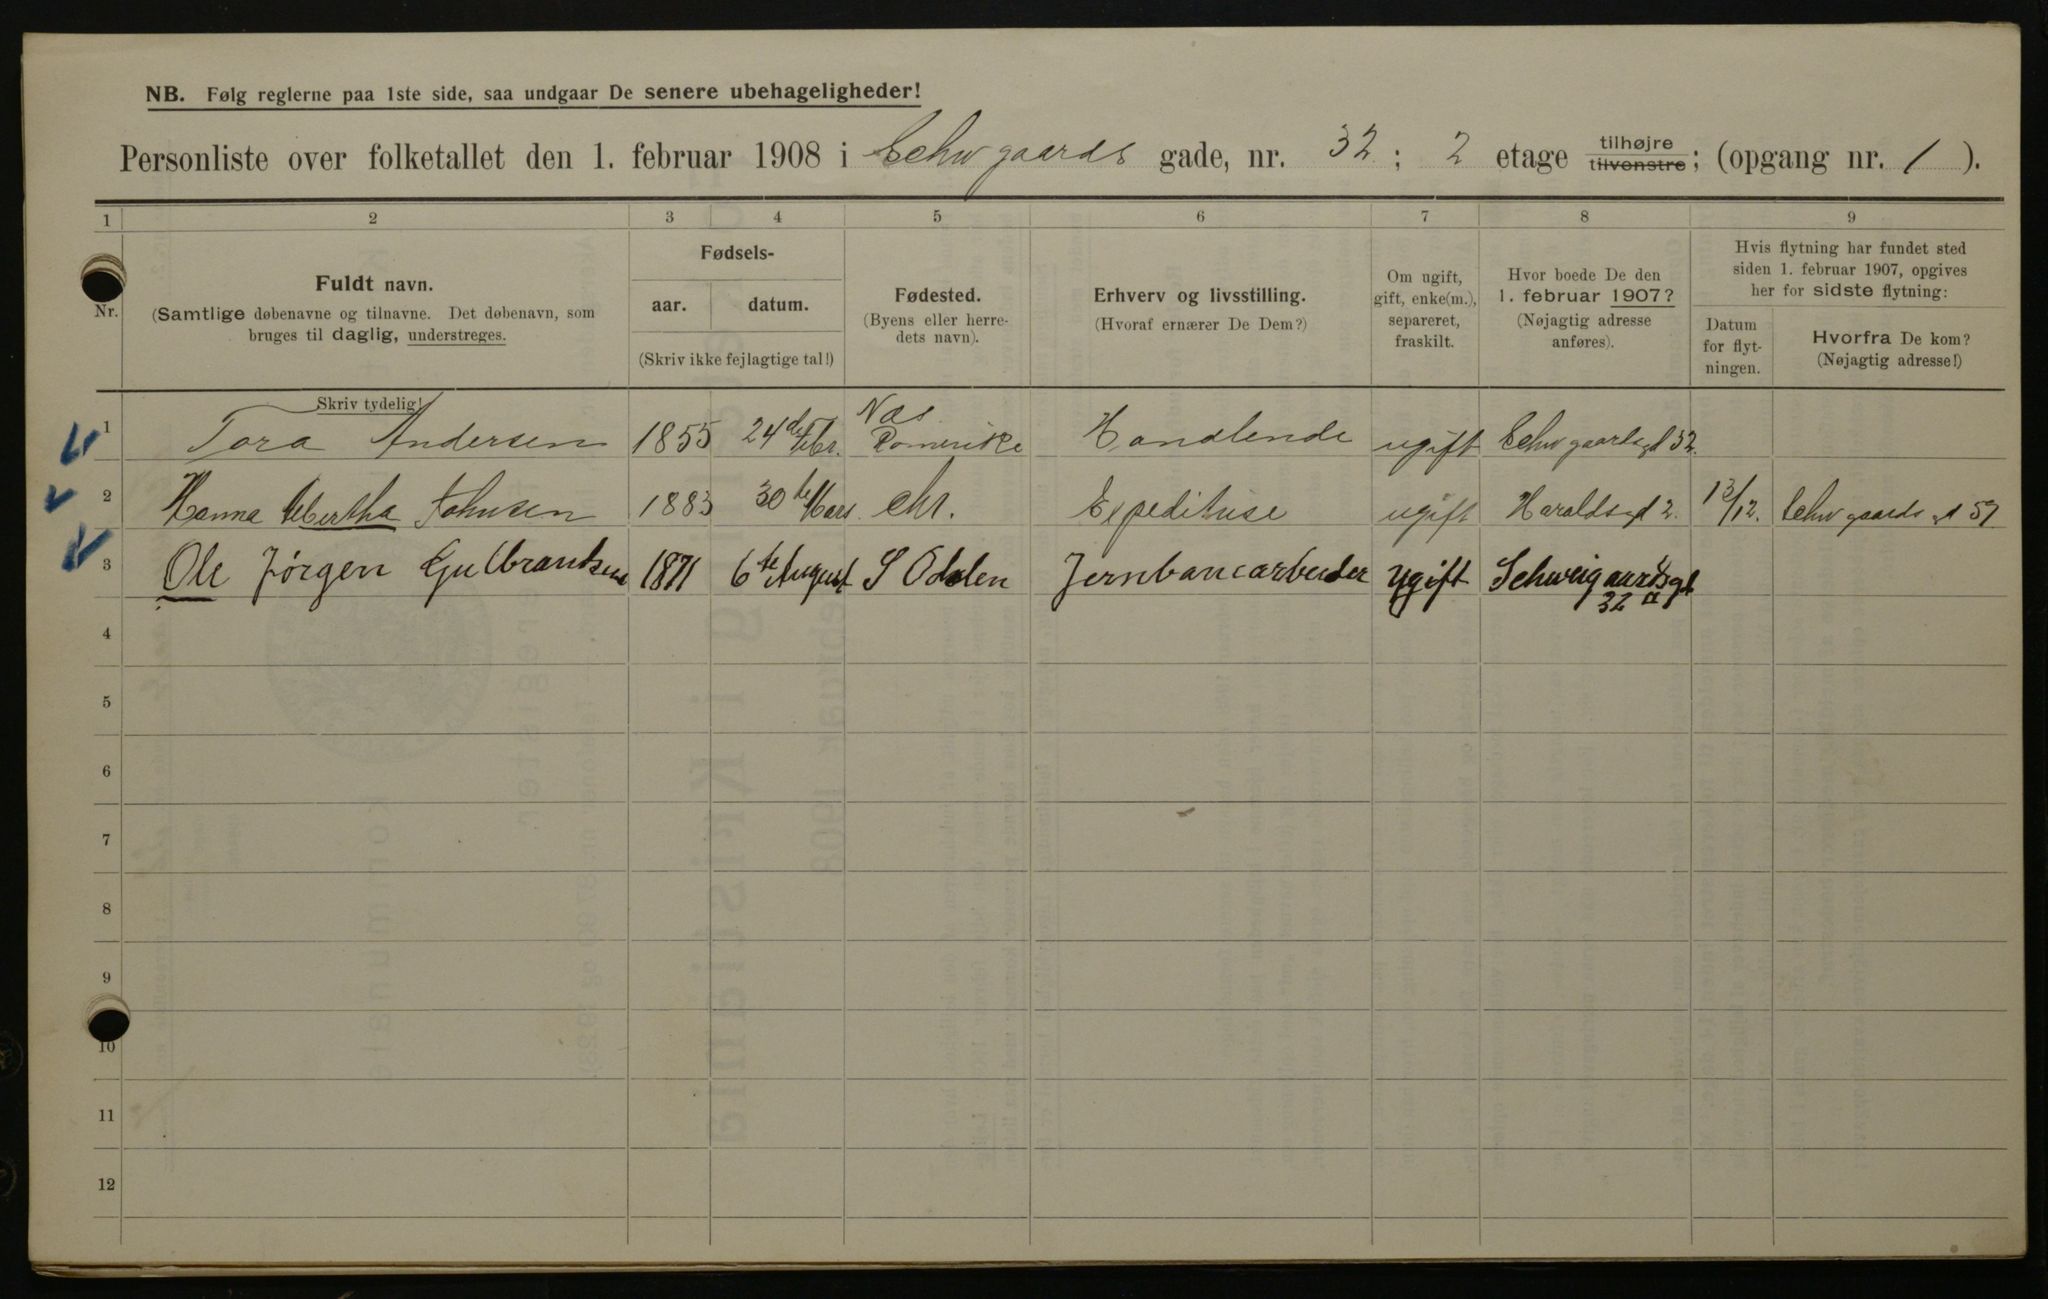 NB. Følg reglerne paa 1ste side, saa undgaar De senere ubehageligheder!
Personliste over folketallet den 1. februar 1908 i Schwgaards gade, nr. 32 ; 2 etage tilhøjre tilvenstre ; (opgang nr. 1 ).
1 2 3 4 5 6 7 8 9
Nr.
Fuldt navn.
(Samtlige døbenavne og tilnavne. Det døbenavn, som
bruges til daglig, understreges.
Skriv tydelig!
Fødsels-
aar. datum.
(Skriv ikke fejlagtige tal!)
Fødested.
(Byens eller herre-
dets navn).
Erhverv og livsstilling.
(Hvoraf ernærer De Dem?)
Om ugift,
gift, enke(m.),
separeret,
fraskilt.
Hvor boede De den
1. februar 1907?
(Nøjagtig adresse
anføres).
Hvis flytning har fundet sted
siden 1. februar 1907, opgives
her for sidste flytning:
Datum
for flyt-
ningen.
Hvorfra De kom?
(Nøjagtig adresse!)
1 Tora Andersen 1855 24de Febr. Næs Romerike Handlende ugift Schwgaardsgd 32.
2 Hanna Bertha Johnsen 1883 30te Mars chr. Expeditrise ugift Haraldsgd 2. 13/12. Schwgaards gd 57
3 Ole Jørgen Gulbrandsen 1871 6te August S Odalen Jernbanearbeider ugift Schweigaardsgd
32
4
5
6
7
8
9
10
11
12